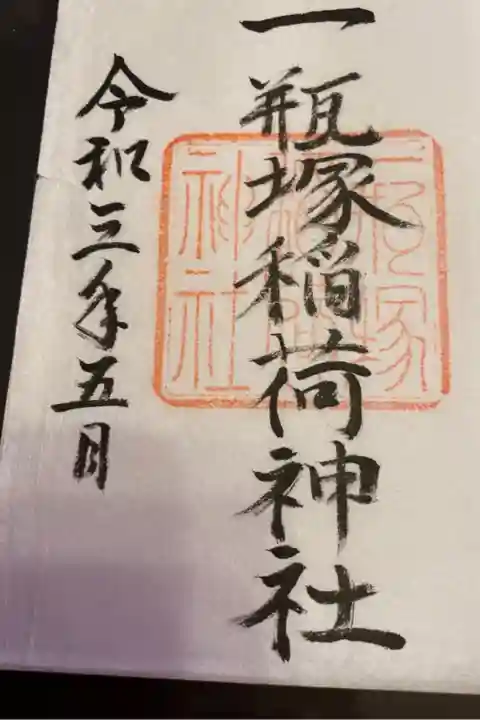 一瓶塚稲荷神社
令和三年五月
一瓶塚
稲荷
神社